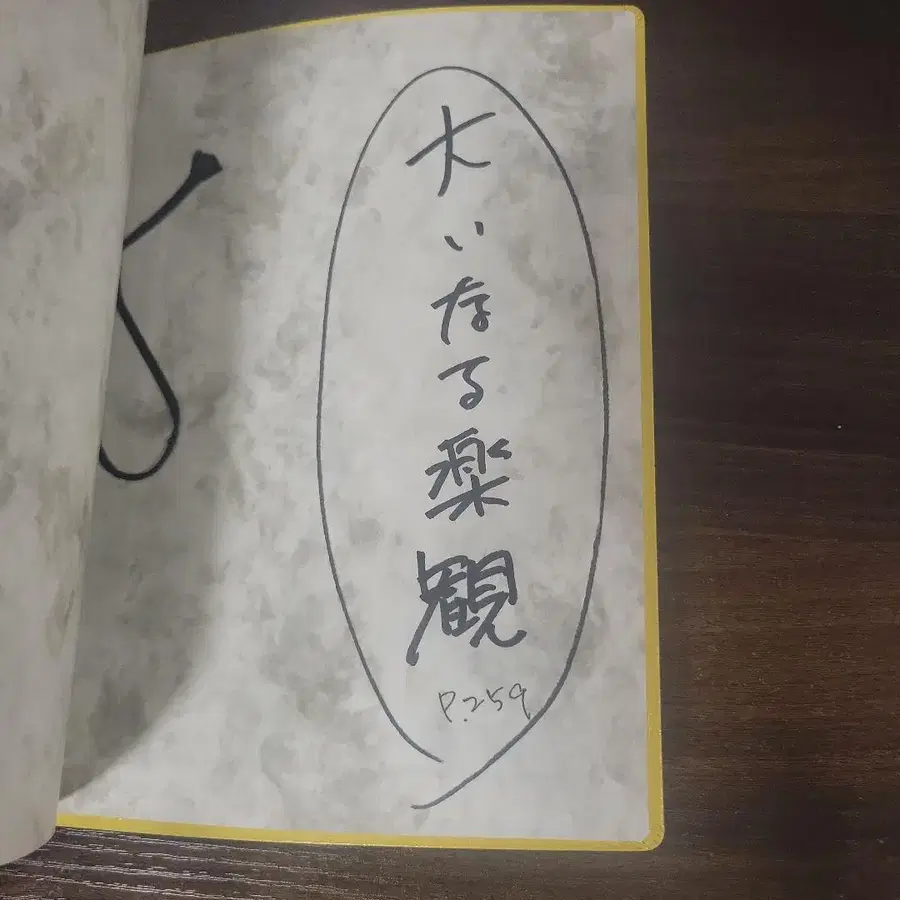 大いなる楽観
P.259